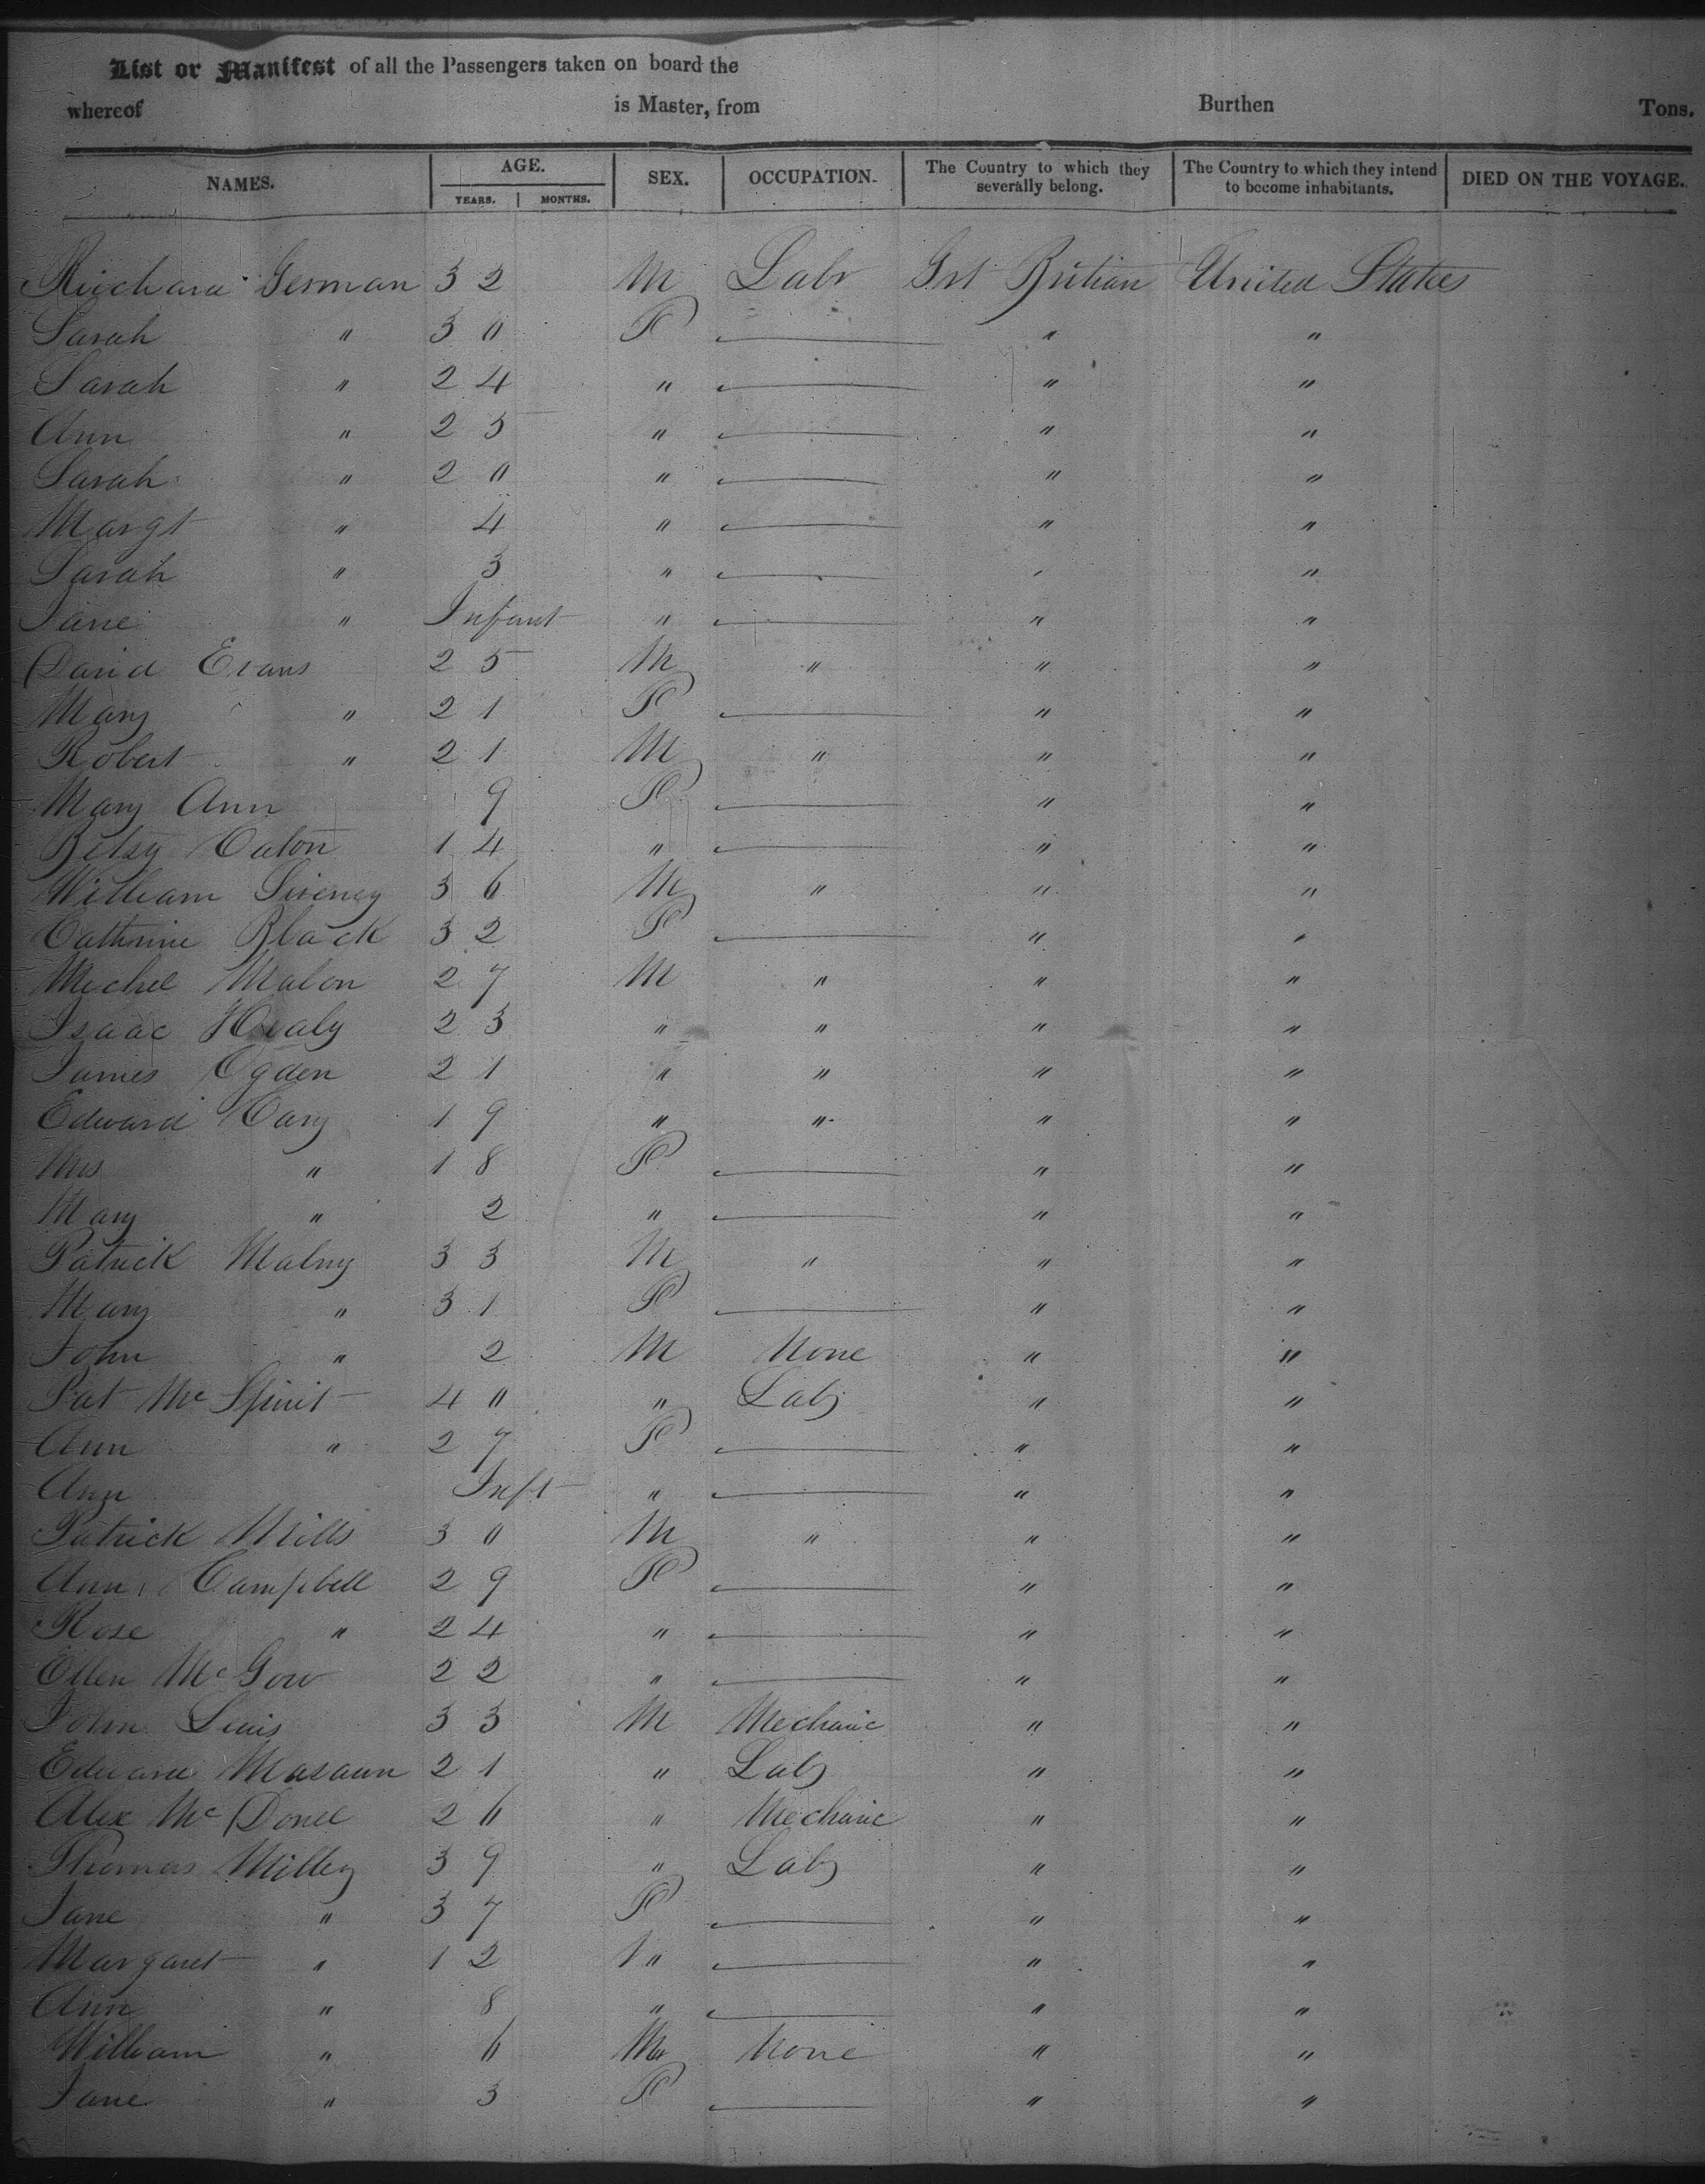 List or Manifest of all the Passengers taken on board the
whereof is Master, from Burthen Tons.
NAMES. AGE. YEARS. MONTHS. SEX. OCCUPATION. The Country to which they severally belong. The Country to which they intend to become inhabitants. DIED ON THE VOYAGE.
Richard German 32 M Labr Grt Britian United States
Sarah " 30 F " "
Sarah " 24 " " "
Ann " 25 " " "
Sarah " 20 " " "
Margt " 4 " " "
Sarah " 3 " " "
Jane " Infant " " "
David Evans 25 M " " "
Mary " 21 F " "
Robert " 21 M " " "
Mary Ann 9 F " "
Betsy 14 " " "
William 36 M " " "
Cathrine Black 32 F " "
Michel Malon 27 M " " "
Isaac Healy 23 " " " "
James Ogden 21 " " " "
Edward Cary 19 " " " "
Mrs " 18 F " "
Mary " 2 " " "
Patrick Malny 33 M " " "
Mary " 31 F " "
John " 2 M None " "
Pat Mc Spirit 40 " Lab " "
Ann " 27 F " "
Ann Inft " " "
Patrick Mills 30 M " " "
Ann Campbell 29 F " "
Rose " 24 " " "
Ellen McGow 22 " " "
John Lewis 33 M Mechanic " "
Edward 21 " Lab " "
Alex Mc Donel 26 " Mechanic " "
Thomas Milley 39 " Lab " "
Jane " 37 F " "
Margaret " 12 " " "
Ann " 8 " " "
William " 6 M None " "
Jane " 3 F " "